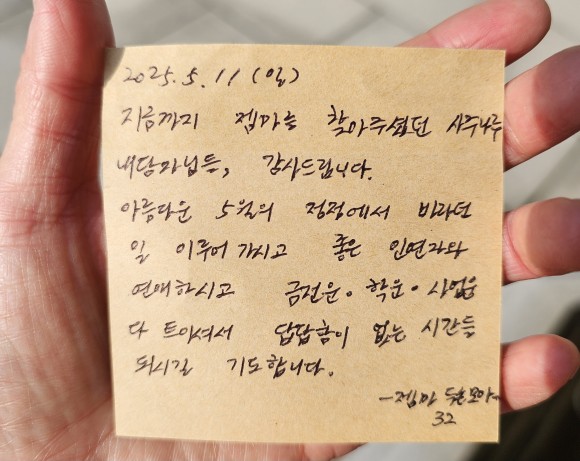 2025.5.11 (일)
지금까지 젬마를 찾아주셨던 사주나루
내담자님들, 감사드립니다.
아름다운 5월의 정정에서 바라던
일 이루어 가시고 좋은 인연자와
연애하시고 금전운. 학운. 사업운
다 트이셔서 답답함이 없는 시간들
되시길 기도합니다.
-젬마 두손모아-
32